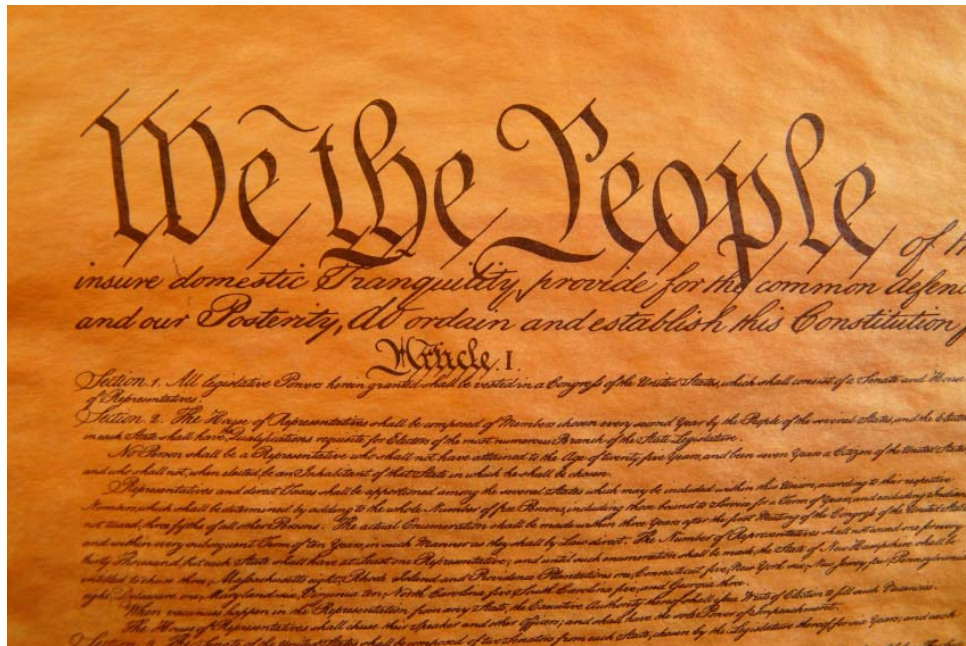 We the People of th
insure domestic Tranquility, provide for the common defenc
and our Posterity, do ordain and establish this Constitution f
Article. I.
Section. 1. All legislative Powers herein granted shall be vested in a Congress of the United States, which shall consist of a Senate and House
of Representatives.
Section. 2. The House of Representatives shall be composed of Members chosen every second Year by the People of the several States, and the Electo
in each State shall have the Qualifications requisite for Electors of the most numerous Branch of the State Legislature.
No Person shall be a Representative who shall not have attained to the Age of twenty five Years, and been seven Years a Citizen of the United States
and who shall not, when elected, be an Inhabitant of that State in which he shall be chosen.
Representatives and direct Taxes shall be apportioned among the several States which may be included within this Union, according to their respective
Numbers, which shall be determined by adding to the whole Number of free Persons, including those bound to Service for a Term of Years, and excluding Indian
not taxed, three fifths of all other Persons. The actual Enumeration shall be made within three Years after the first Meeting of the Congress of the United State
and within every subsequent Term of ten Years, in such Manner as they shall by Law direct. The Number of Representatives shall not exceed one for every
thirty Thousand, but each State shall have at Least one Representative; and until such enumeration shall be made, the State of New Hampshire shall be
entitled to chuse three, Massachusetts eight, Rhode Island and Providence Plantations one, Connecticut five, New York six, New Jersey four, Pennsylvania
eight, Delaware one, Maryland six, Virginia ten, North Carolina five, South Carolina five, and Georgia three.
When vacancies happen in the Representation from any State, the Executive Authority thereof shall issue Writs of Election to fill such Vacancies.
The House of Representatives shall chuse their Speaker and other Officers; and shall have the sole Power of Impeachment.
Section. 3. The Senate of the United States shall be composed of two Senators from each State, chosen by the Legislature thereof, for six Years; and each